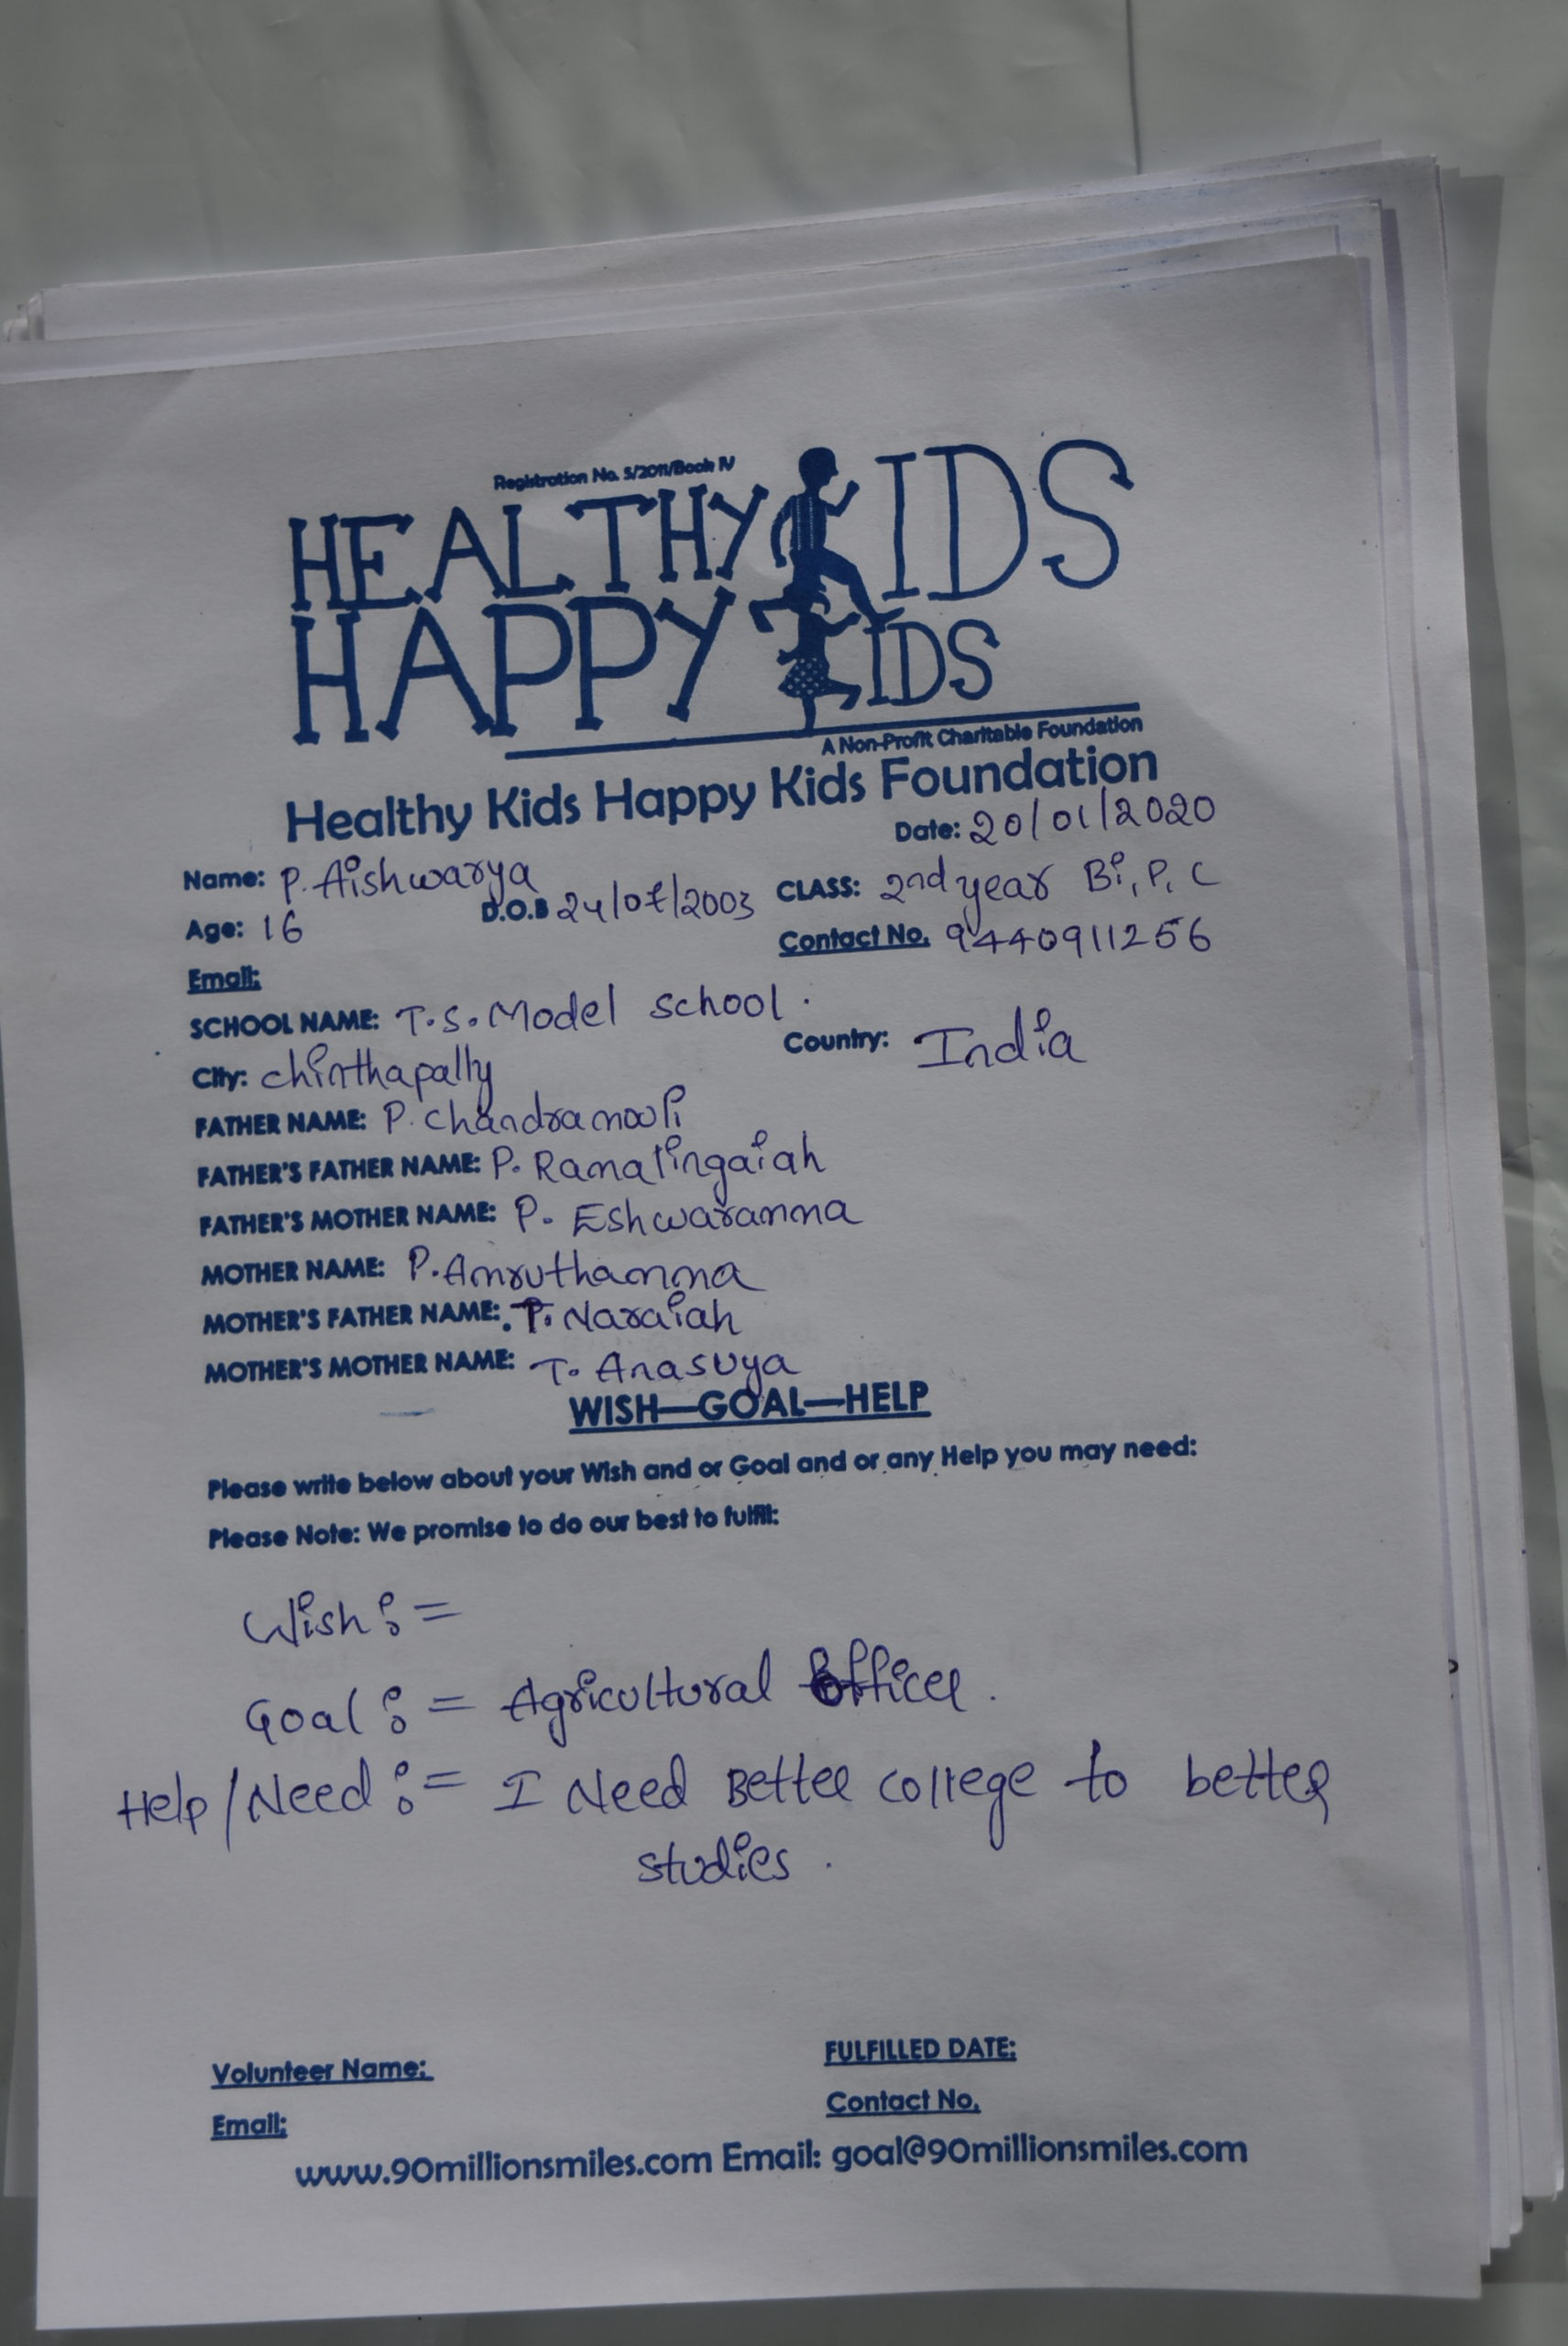 Registration No. 5/2011/Book IV
HEALTHY KIDS
HAPPY KIDS
A Non-Profit Charitable Foundation
Healthy Kids Happy Kids Foundation
Date: 20/01/2020
Name: P. Aishwarya
CLASS: 2nd year Bi, P, C
Age: 16 D.O.B 24/07/2003
Contact No. 9440911256
Email:
SCHOOL NAME: T.S. Model school.
City: chinthapally Country: India
FATHER NAME: P. chandramouli
FATHER'S FATHER NAME: P. Ramalingaiah
FATHER'S MOTHER NAME: P. Eshwaramma
MOTHER NAME: P. Amruthamma
MOTHER'S FATHER NAME: T. Naraiah
MOTHER'S MOTHER NAME: T. Anasuya
WISH—GOAL—HELP
Please write below about your Wish and or Goal and or any Help you may need:
Please Note: We promise to do our best to fulfil:
Wish :=
Goal := Agricultural Officer.
Help/Need := I Need Better college to better
studies.
Volunteer Name: FULFILLED DATE:
Email: Contact No.
www.90millionsmiles.com Email: goal@90millionsmiles.com